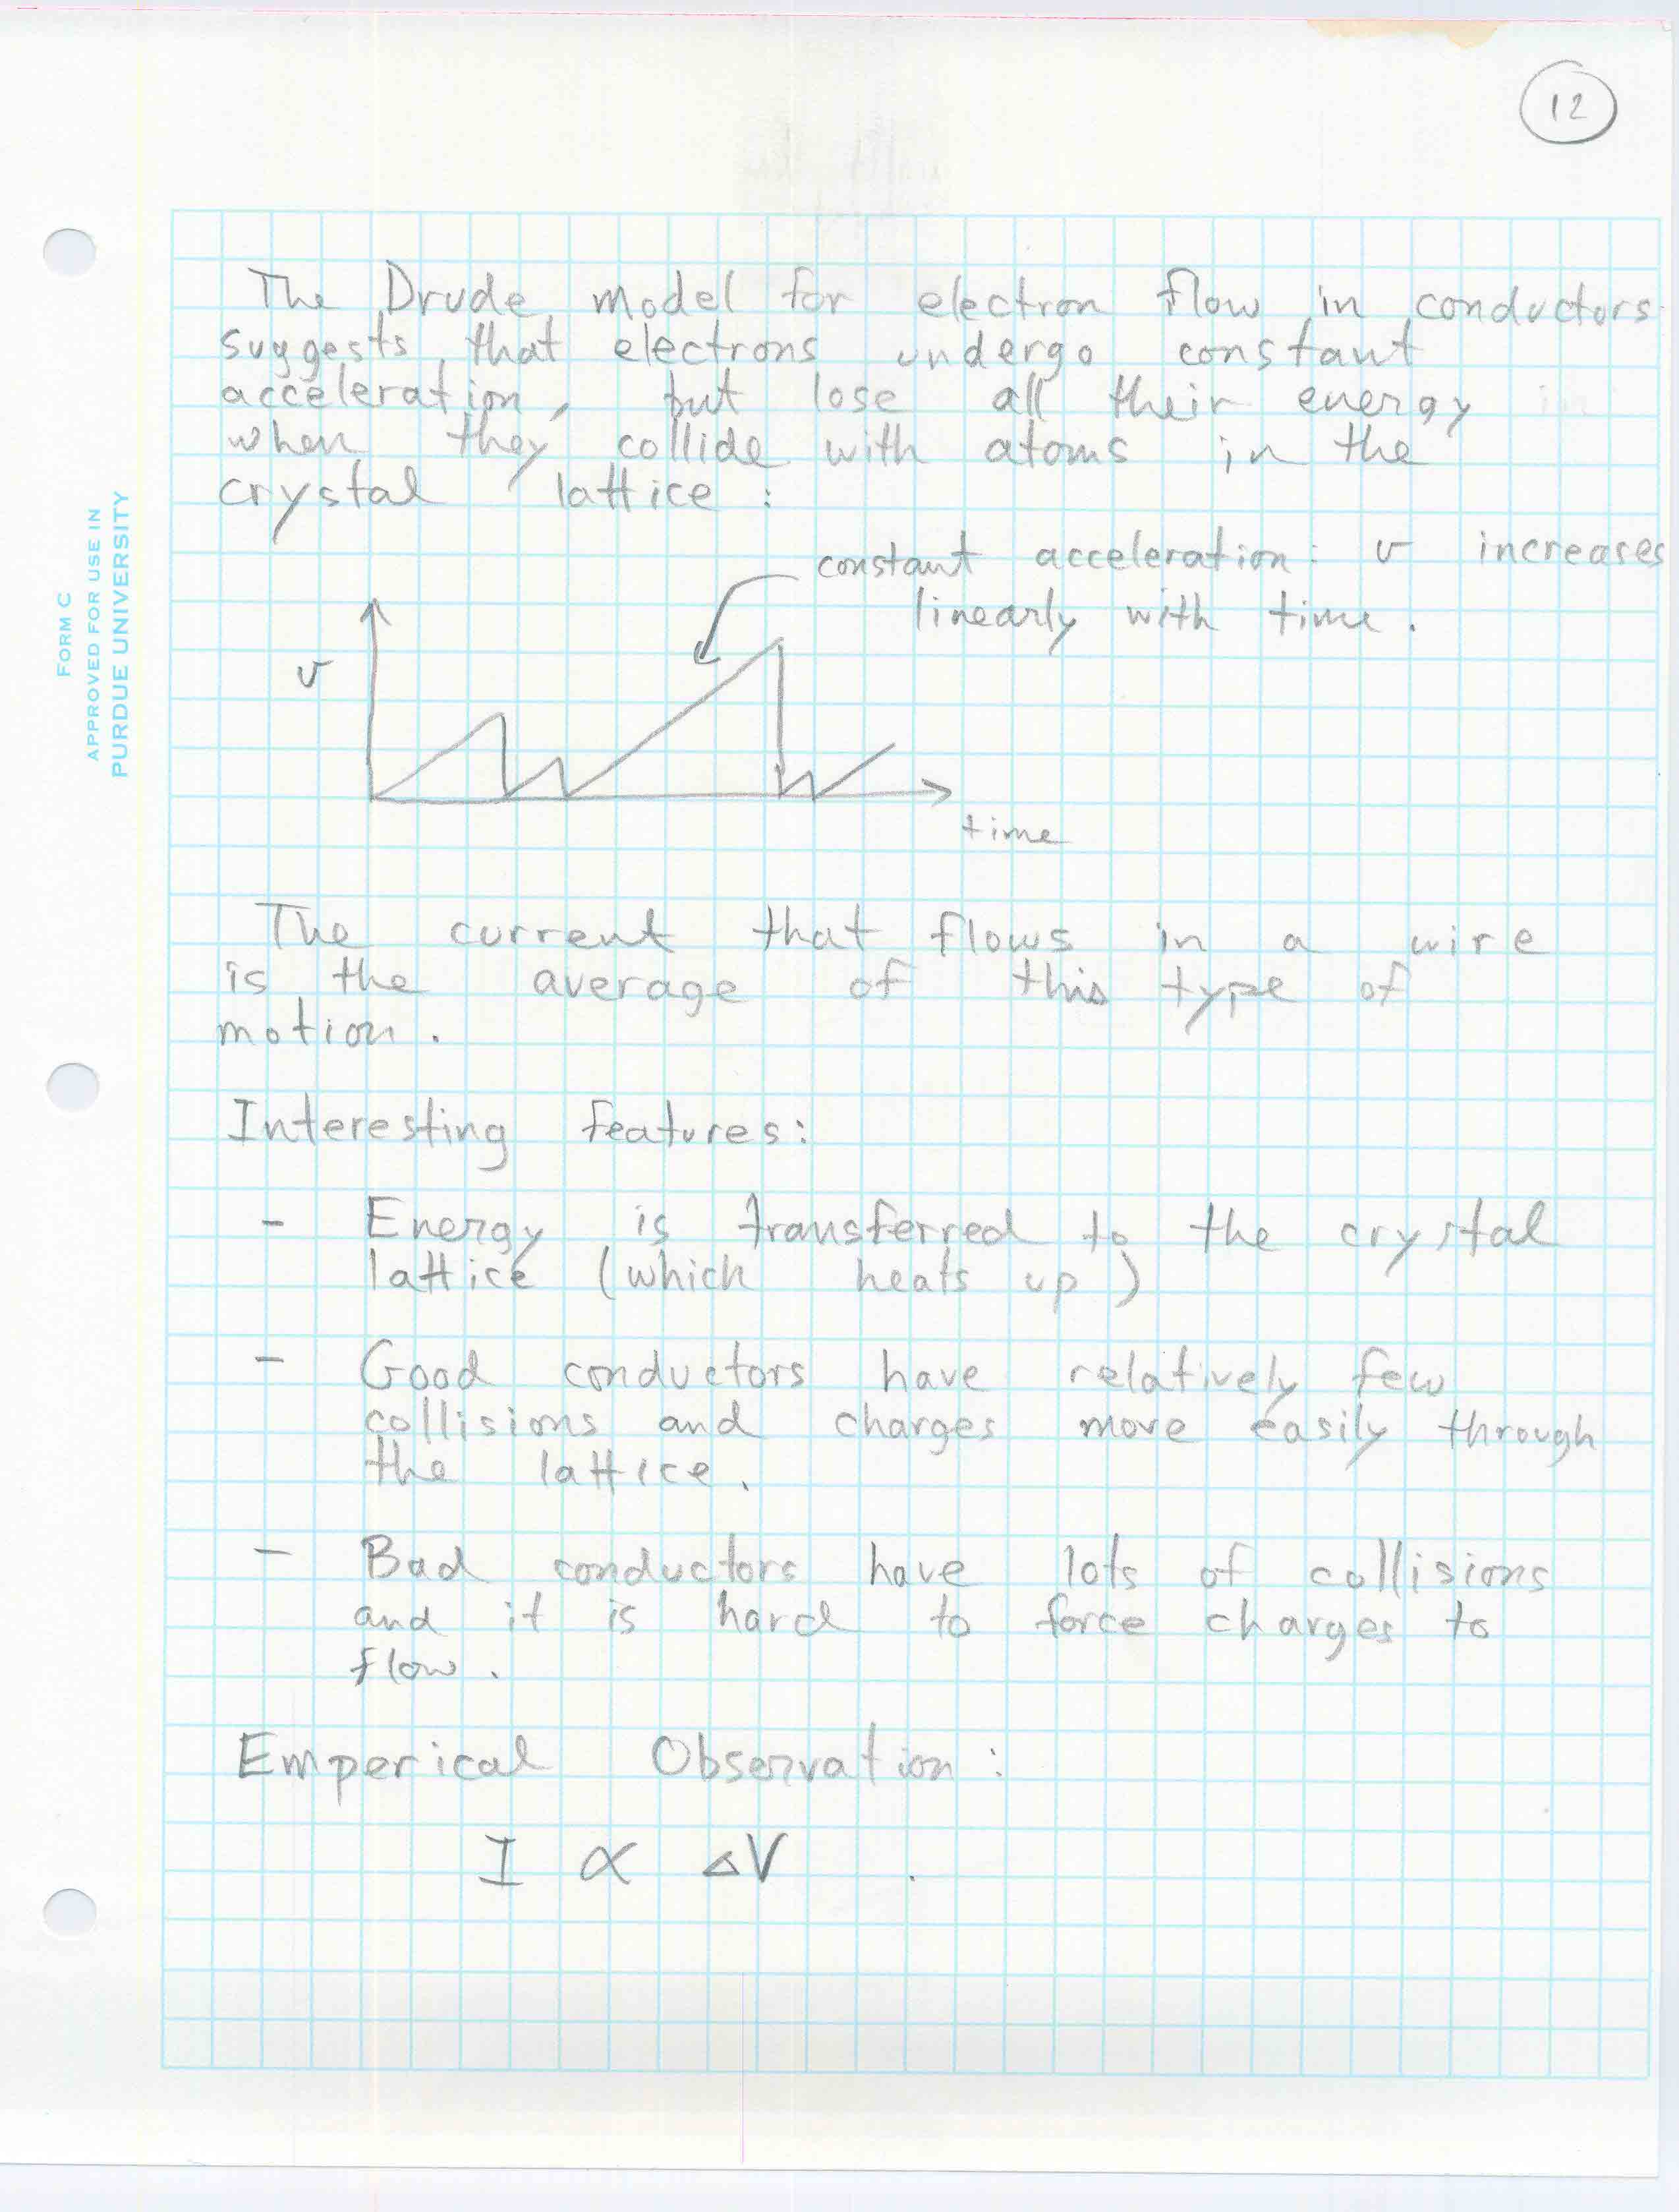 12
The Drude model for electron flow in conductors
suggests that electrons undergo constant
acceleration, but lose all their energy
when they collide with atoms in the
crystal lattice :
constant acceleration: v increases
linearly with time.
v
time
The current that flows in a wire
is the average of this type of
motion.
Interesting features:
- Energy is transferred to the crystal
lattice (which heats up)
- Good conductors have relatively few
collisions and charges move easily through
the lattice.
- Bad conductors have lots of collisions
and it is hard to force charges to
flow.
Emperical Observation:
I ∝ ΔV .
FORM C
APPROVED FOR USE IN
PURDUE UNIVERSITY